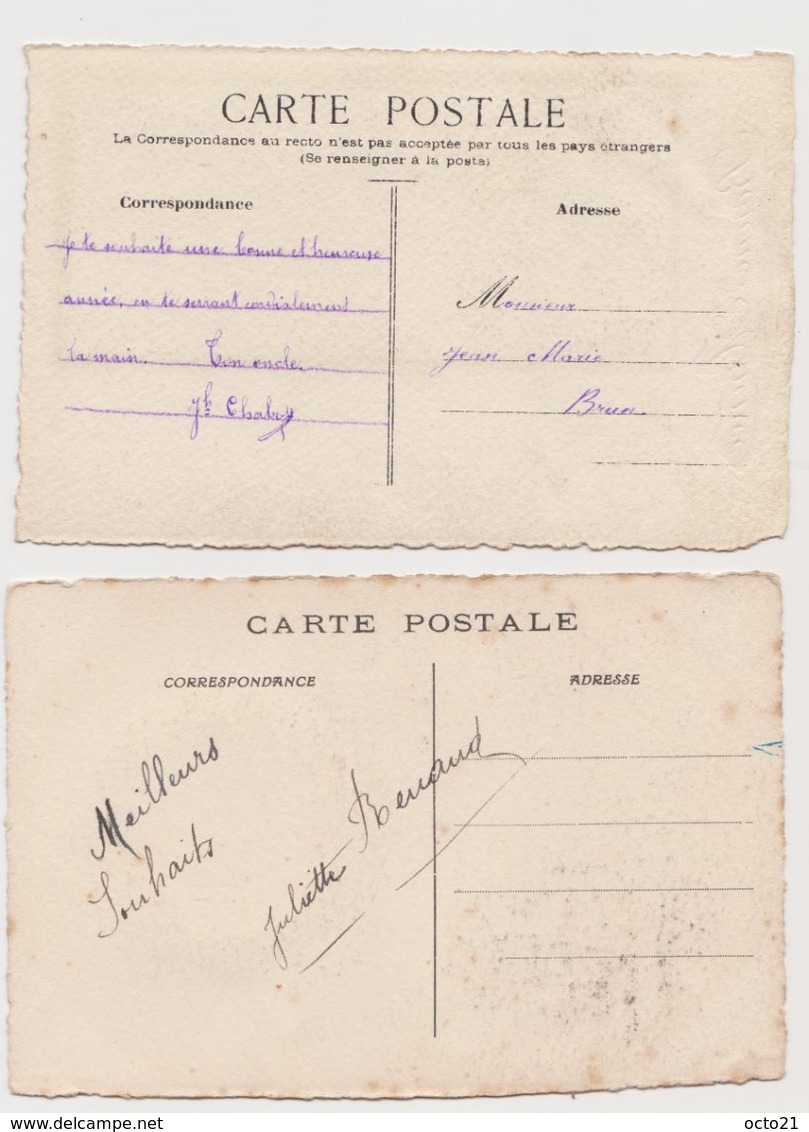 CARTE POSTALE
La Correspondance au recto n'est pas acceptée par tous les pays étrangers
(Se renseigner à la poste)
Correspondance
Je te souhaite une bonne et heureuse
année, en te serrant cordialement
la main. Ton oncle.
Jh Chabry
Adresse
Monsieur
Jean Marie
Brun
CARTE POSTALE
CORRESPONDANCE
Meilleurs
Souhaits
Juliette Renaud
ADRESSE
delcampe.net
octo21